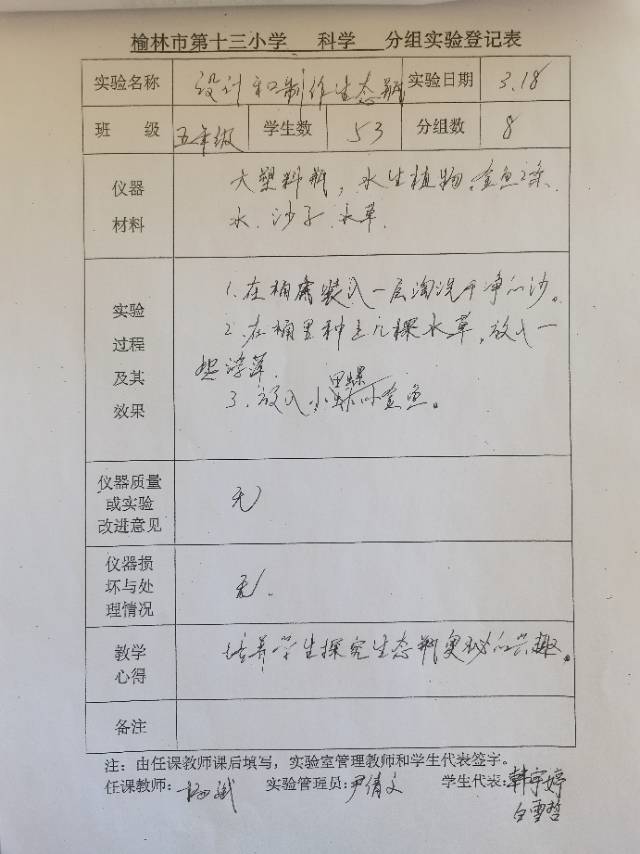 榆林市第十三小学 科学 分组实验登记表
实验名称 设计和制作生态瓶 实验日期 3.18
班 级 五年级 学生数 53 分组数 8
仪器材料 大塑料瓶，水生植物，金鱼2条
水．沙子．水草．
实验过程及其效果 1.在桶底装入一层淘洗干净的沙。
2.在桶里种上几棵水草，放入一些浮萍．
3.放入小田螺小金鱼。
仪器质量或实验改进意见 无
仪器损坏与处理情况 无．
教学心得 培养学生探究生态瓶奥秘的兴趣。
备注
注：由任课教师课后填写，实验室管理教师和学生代表签字。
任课教师： 杨斌 实验管理员：尹倩文 学生代表：韩宇婷
白雪哲